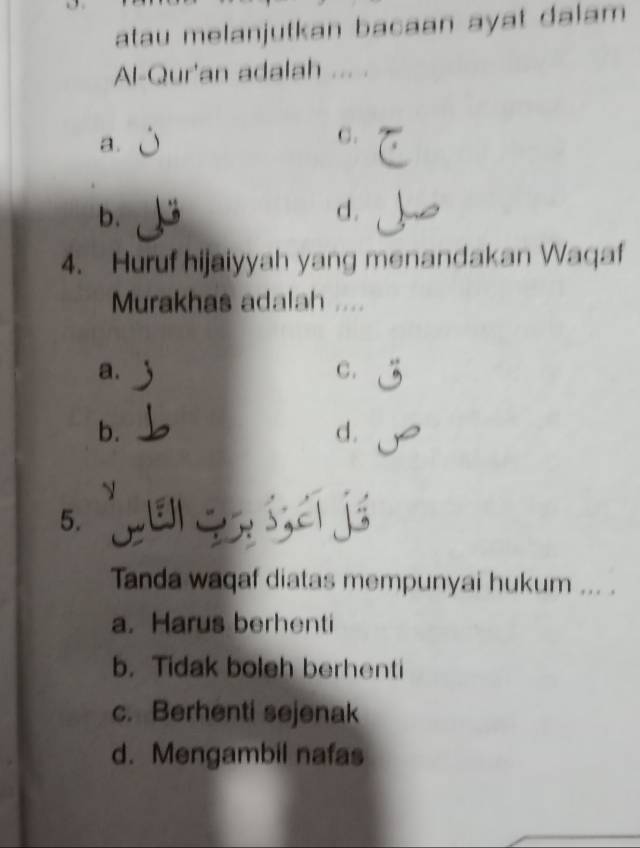 atau melanjutkan bacaan ayat dalam
Al-Qur'an adalah ... .
a. ن
c. ج
b. قلى
d. صلى
4. Huruf hijaiyyah yang menandakan Waqaf
Murakhas adalah ....
a. ز
c. ق
b. ط
d. ص
5. قُلْ أَعُوْذُ بِرَبِّ النَّاسِ ۙ
Tanda waqaf diatas mempunyai hukum ... .
a. Harus berhenti
b. Tidak boleh berhenti
c. Berhenti sejenak
d. Mengambil nafas